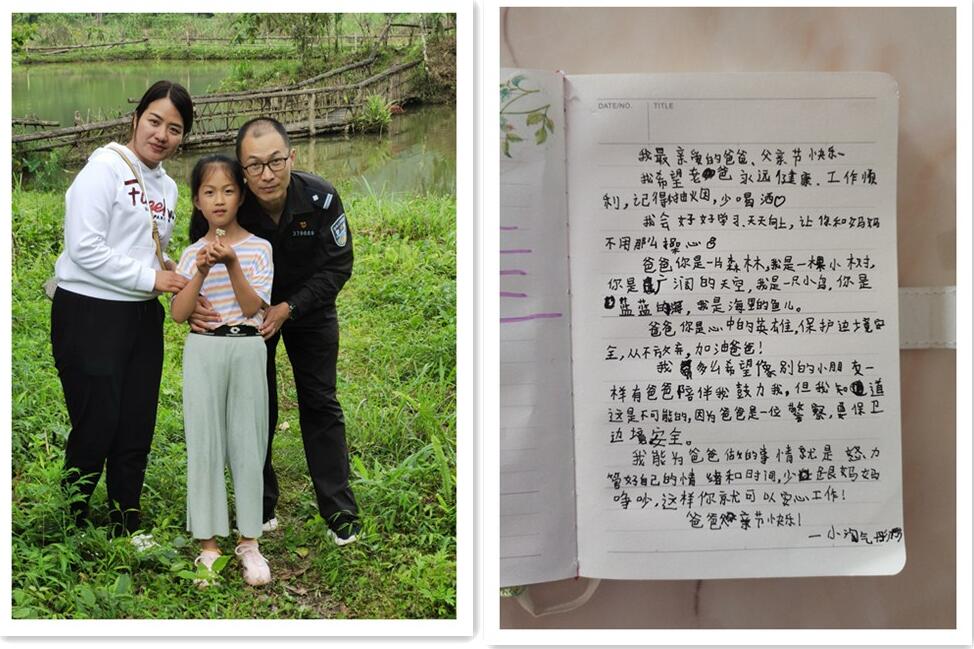 379669
DATE/NO. TITLE
我最亲爱的爸爸、父亲节快乐~
我希望老爸永远健康、工作顺
利,记得抽火因,少喝酒♡
我会好好学习、天天向上,让你和妈妈
不用那么操心
爸爸你是一片森林,我是一棵小树,
你是广阔的天空,我是一只小鸟,你是
蓝蓝的海,我是海里的鱼儿。
爸爸你是心中的英雄,保护边境安
全,从不放弃,加油爸爸!
我多么希望像别的小朋友一
样有爸爸陪伴我鼓力我,但我知道
这是不可能的,因为爸爸是一位警察,要保卫
边境安全。
我能为爸爸做的事情就是努力
管好自己的情绪和时间,少跟妈妈
争吵,这样你就可以安心工作!
爸爸父亲节快乐!
—小淘气